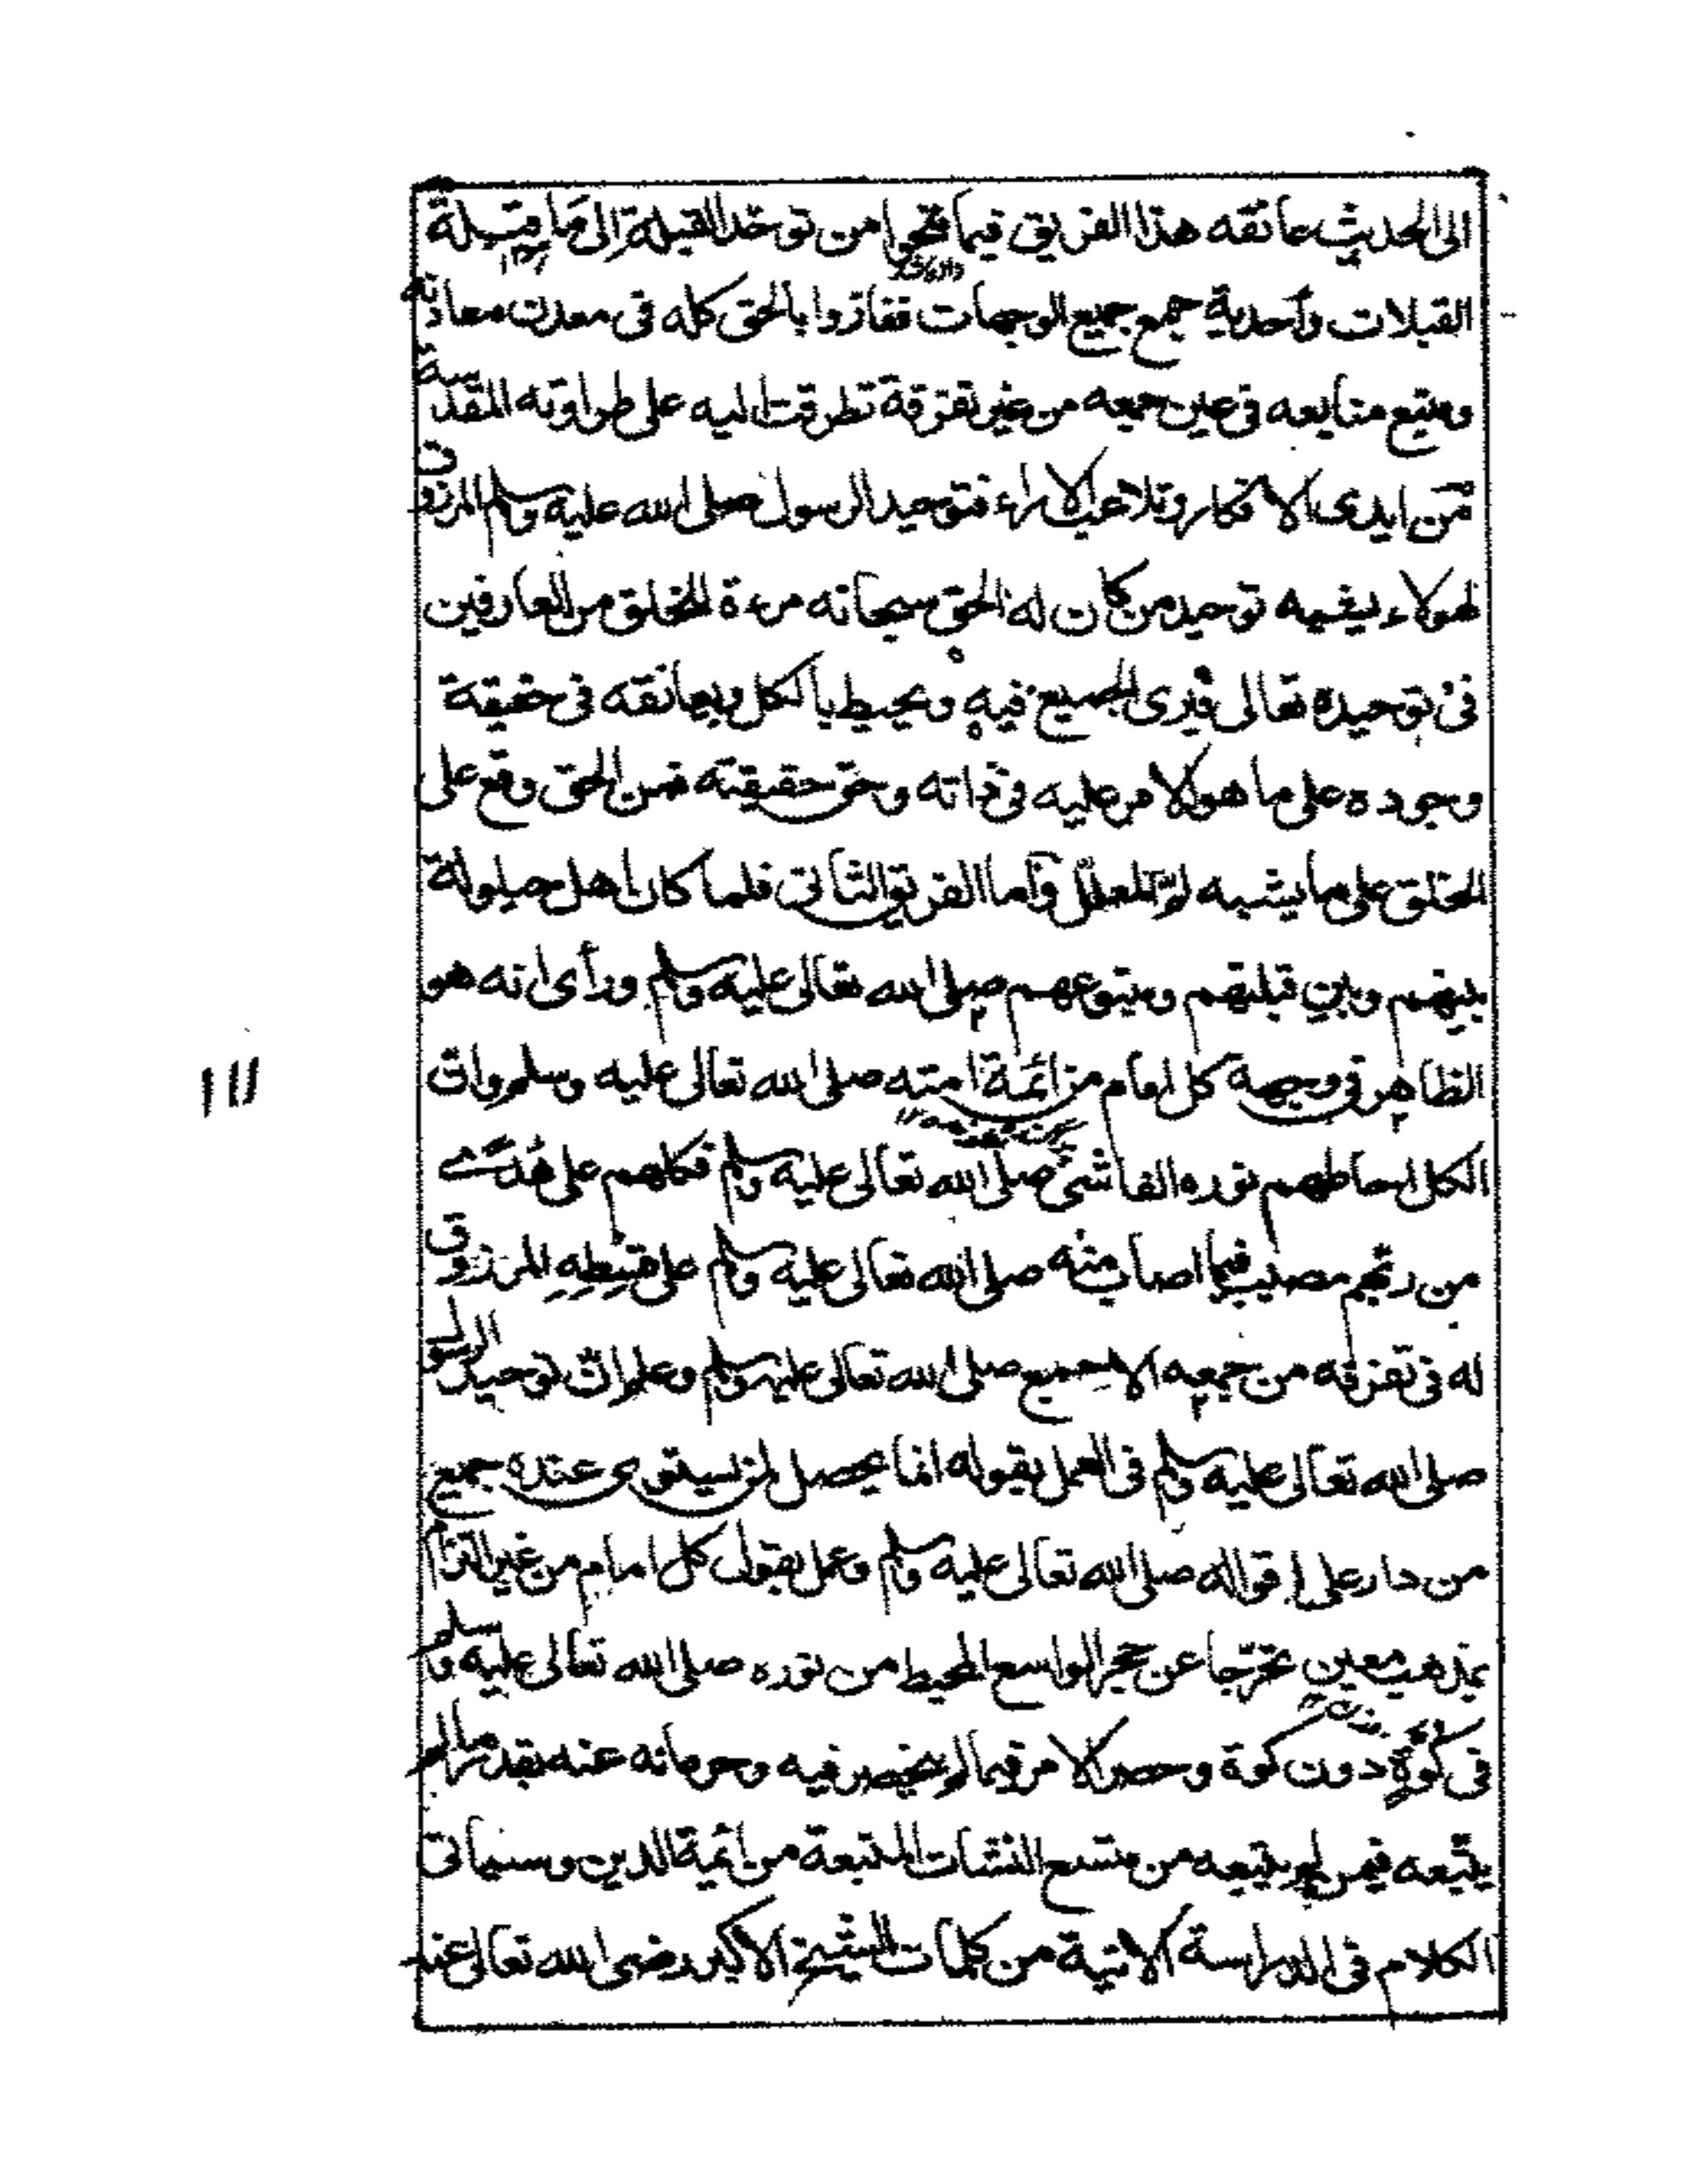 الى الحديث عانقه هذا الفريق فيما فتحوا من توحد القبلة إلى ما قبلة
القبلات وأحدية جمع جميع الوجهات ففازوا بالحق كله فى معدن معادنه
ومنبع منابعه فى عين جمعه من غير تفرقة تطرقت اليه على طراوته المقدسة
من ايدى الافكار وتلاعب الاراء فتوحيد الرسول صلى الله عليه وسلم المرزوق
لهولاء يشبه توحيد من كان له الحق سبحانه مرءة للخلق من العارفين
فى توحيده تعالى فيرى الجميع فيه ويحيط بالكل ويعانقه فى حقيقة
وجوده على ما هو الامر عليه فى ذاته وحق حقيقته فمن الحق وقع على
الخلق على ما يشبه وأما الفريق الثانى فلما كان اهل حيلولة
بينهم وبين قبلتهم ومتبوعهم صلى الله تعالى عليه وسلم ورأى انه هو
الظاهر فى وجهة كل امام من ائمة امته صلى الله تعالى عليه وسلم وان
الكل احاطهم نوره الفاشى صلى الله تعالى عليه وسلم فكلهم على هدى
من ربهم مصيب فيما اصاب منه صلى الله تعالى عليه وسلم على قسطه المرزوق
له فى تفرقه من جمعه الاجمع صلى الله تعالى عليه وسلم وعلم ان توحيد الرسول
صلى الله تعالى عليه وسلم فى العمل بقوله انما يحصل لمن يستوى عنده جميع
من دار على اقواله صلى الله تعالى عليه وسلم وعمل بقول كل امام من غير التزام
بمذهب معين تحرجا عن حجر الواسع المحيط من نوره صلى الله تعالى عليه وسلم
فى كوة دون كوة وحصر الامر فيما لم ينحصر فيه وحرمانه عنه بقدر ما لم
يتبعه فيمن لم يتبعه من متسع النشات المتبعة من ائمة الدين وسياتى
الكلام فى الدراسة الاتية من كلمات الشيخ الاكبر رضى الله تعالى عنه
١١١